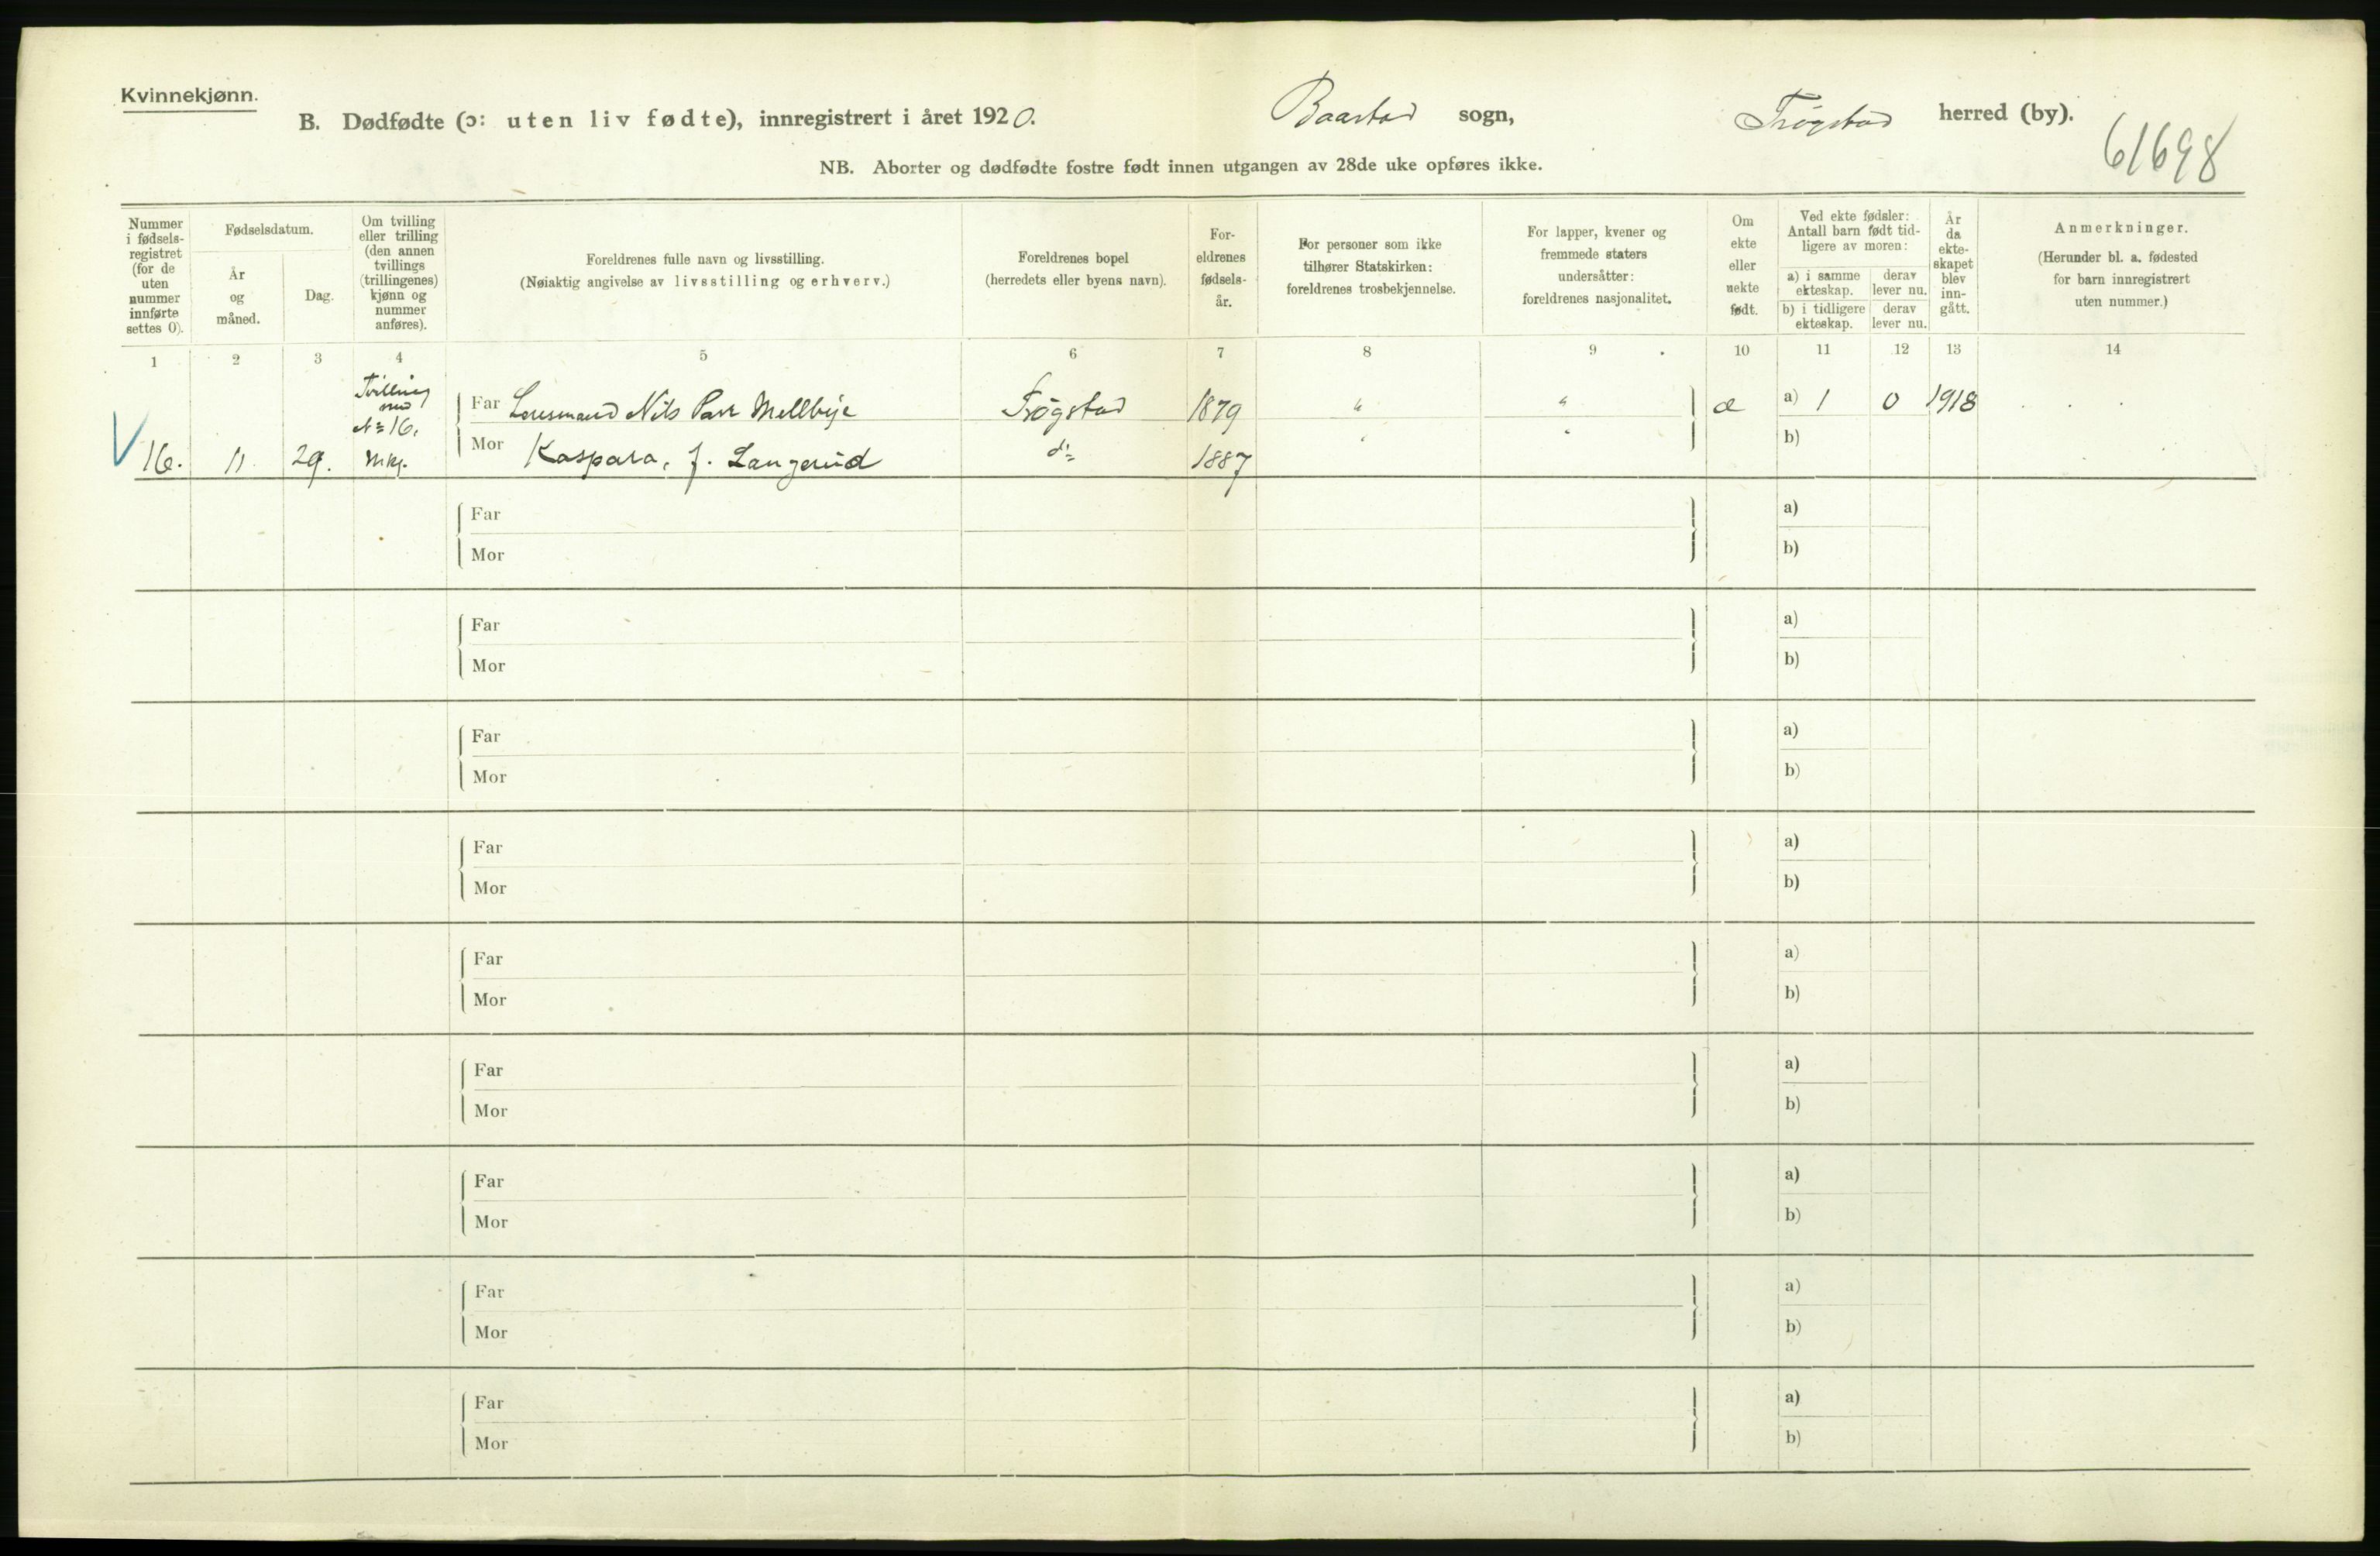 Kvinnekjønn.
B. Dødfødte (ɔ: uten liv fødte), innregistrert i året 1920.
Baastad sogn,
Trøgstad herred (by).
61698
NB. Aborter og dødfødte fostre født innen utgangen av 28de uke opføres ikke.
Nummer
i fødsels-
registret
(for de
uten
nummer
innførte
settes 0).
Fødselsdatum.
År
og
måned.
Dag.
Om tvilling
eller trilling
(den annen
tvillings
(trillingenes)
kjønn og
nummer
anføres).
Foreldrenes fulle navn og livsstilling.
(Nøiaktig angivelse av livsstilling og erhverv.)
Foreldrenes bopel
(herredets eller byens navn).
For-
eldrenes
fødsels-
år.
For personer som ikke
tilhører Statskirken:
foreldrenes trosbekjennelse.
For lapper, kvener og
fremmede staters
undersåtter:
foreldrenes nasjonalitet.
Om
ekte
eller
uekte
født.
Ved ekte fødsler:
Antall barn født tid-
ligere av moren:
a) i samme
ekteskap.
derav
lever nu.
b) i tidligere
ekteskap.
derav
lever nu.
År
da
ekte-
skapet
blev
inn-
gått.
Anmerkninger.
(Herunder bl. a. fødested
for barn innregistrert
uten nummer.)
1 2 3 4 5 6 7 8 9 10 11 12 13 14
Tvilling
med
No 16.
Far Lensmand Nils Mellbye Trøgstad 1879 " " æ a) 1 0 1918
16. 11. 29. mkj. Mor Kaspara, f. Langerud do 1887 " " b)
Far a)
Mor b)
Far a)
Mor b)
Far a)
Mor b)
Far a)
Mor b)
Far a)
Mor b)
Far a)
Mor b)
Far a)
Mor b)
Far a)
Mor b)
Far a)
Mor b)